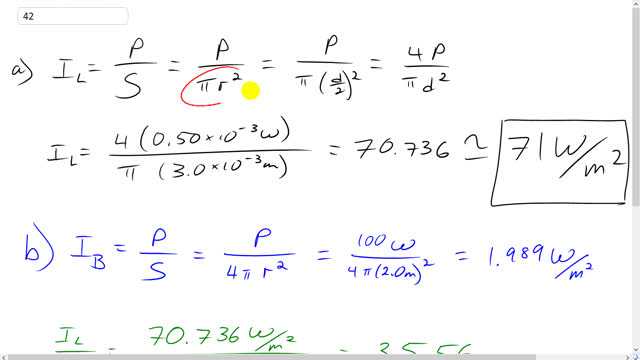 42
a) I_L = P/S = P/(π r²) = P/(π (d/2)²) = 4P/(π d²)
I_L = 4(0.50×10⁻³ W)/(π (3.0×10⁻³ m)) = 70.736 ≅ 71 W/m²
b) I_B = P/S = P/(4π r²) = 100 W/(4π(2.0m)²) = 1.989 W/m²
I_L 70.736 W/m² = 35.56